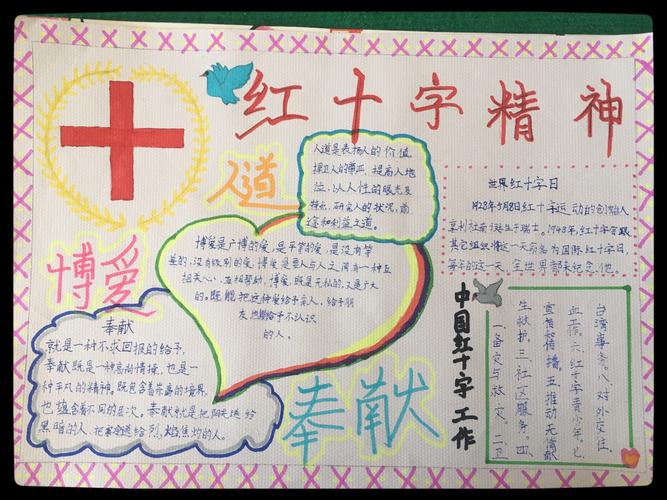 红十字精神
人道
人道是表扬人的价值
捍卫人的尊严 提高人地
位. 以人性的眼光及
特点. 研究人的状况, 前
途和利益之道。
世界红十字日
1928年5月8日红十字运动的创始人
亨利杜南诞生于瑞士。1948年, 红十字会跟
其它组织将这一天命名为国际红十字日,
每年的这一天, 全世界都来纪念他。
博爱
博爱是广博的爱, 是平常的爱, 是没有等
差的, 没有级别的爱, 博爱是要人与人之间有一种互
相关心, 互相帮助, 博爱, 既是无私的, 又是广大
的。既能把这种爱给予亲人, 给予朋
友, 也能给予不认识
的人。
奉献
就是一种不求回报的给予,
奉献既是一种高尚情操, 也是一
种平凡的精神, 既包含着崇高的境界,
也蕴含着不同的层次。奉献就是把阳光送给
黑暗的人,
奉献
中国红十字工作
一. 备灾与救灾。二. 卫
生救护。三. 社区服务。四.
宣传和传播. 五. 推动无偿献
血。六. 红十字青少年. 七.
台湾事务。八. 对外交往.